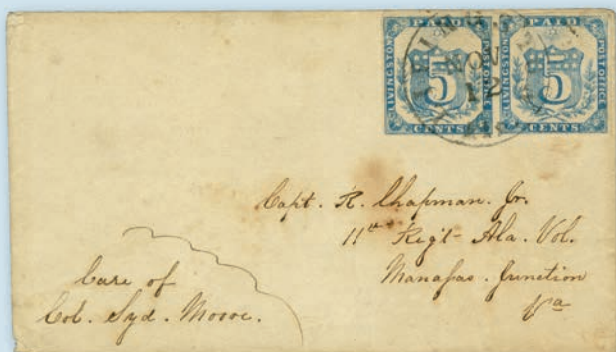 PAID
LIVINGSTON
5
POST OFFICE
CENTS
PAID
LIVINGSTON
5
POST OFFICE
CENTS
NOV
12
Capt. R. Chapman. Jr.
11th Reg't - Ala. Vol.
Manassas. Junction
Va
Care of
Col. Syd. Moore.